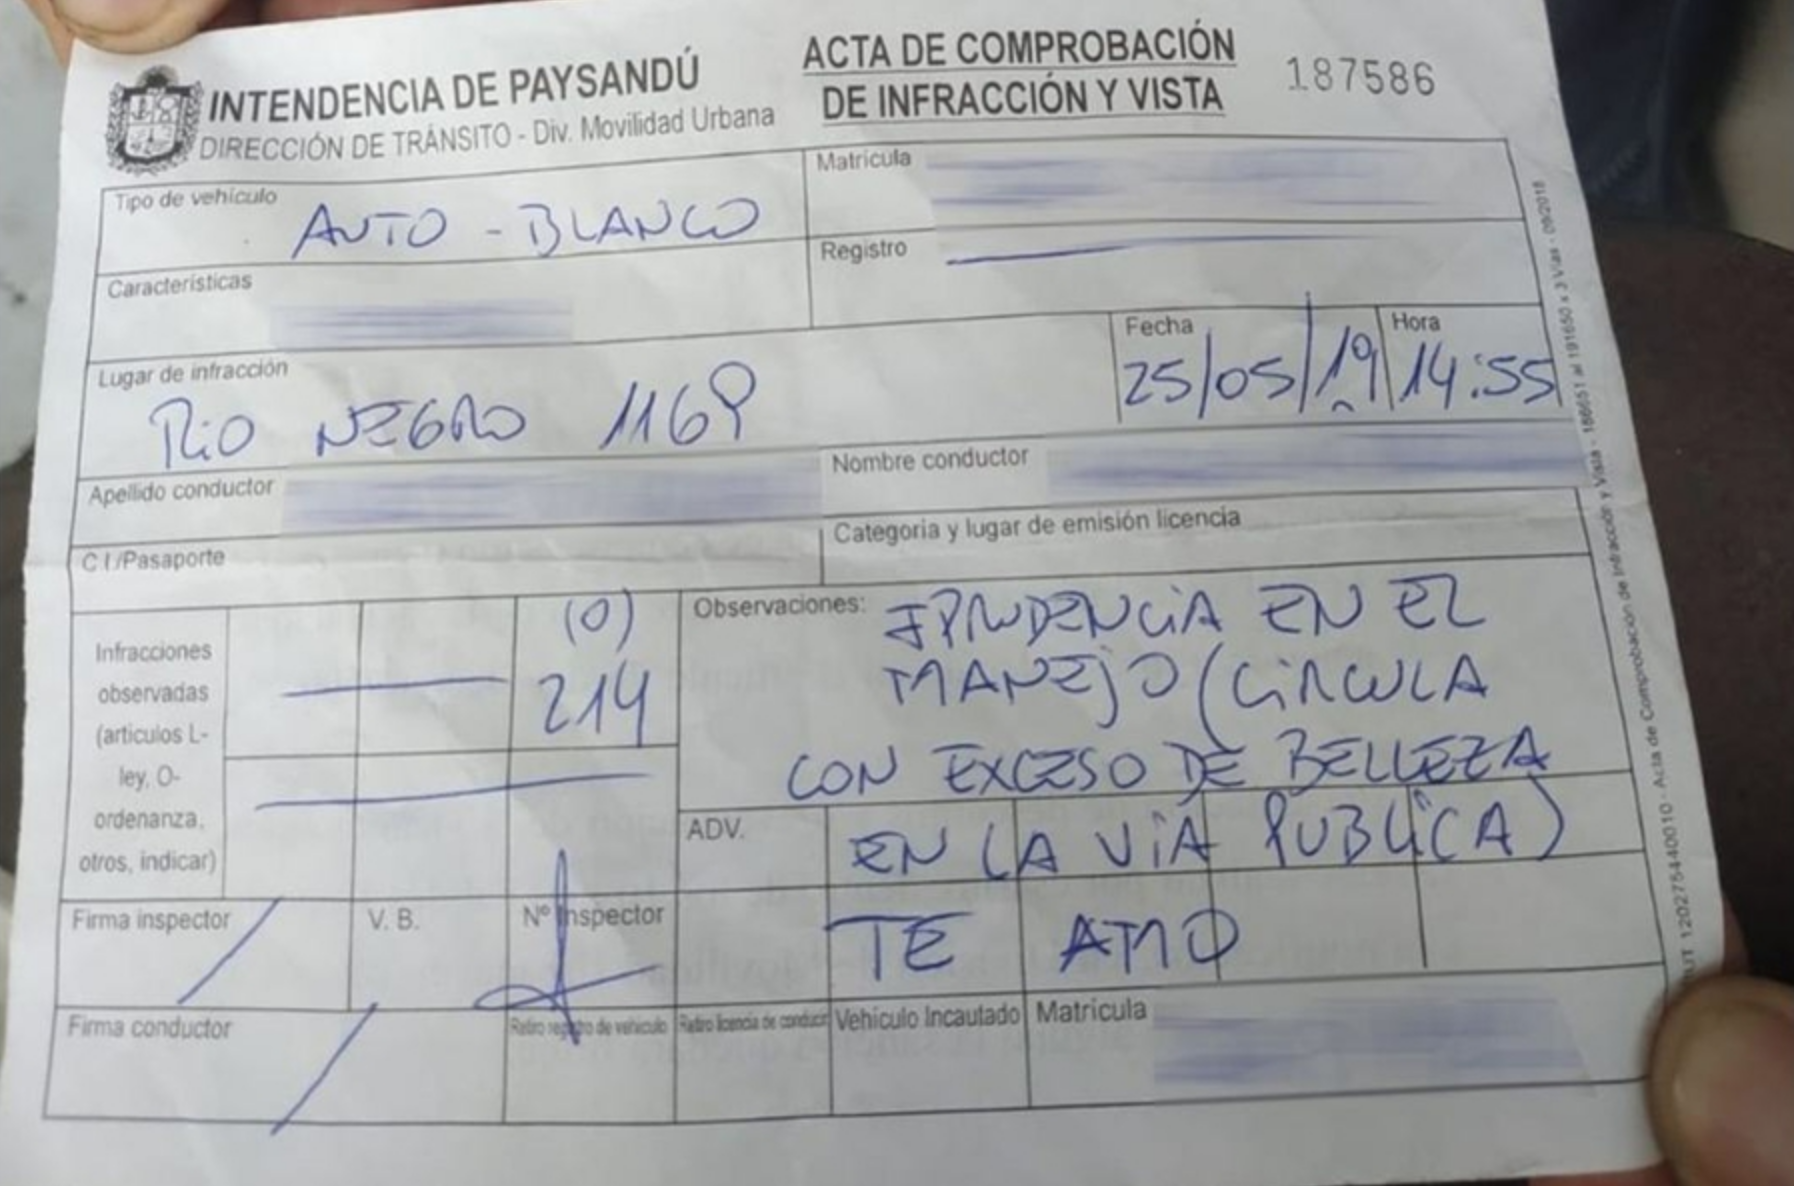 INTENDENCIA DE PAYSANDÚ
DIRECCIÓN DE TRÁNSITO - Div. Movilidad Urbana
ACTA DE COMPROBACIÓN
DE INFRACCIÓN Y VISTA
187586
Tipo de vehículo
AUTO - BLANCO
Matrícula
Registro
Características
Lugar de infracción
RiO NEGRO 1169
Fecha
25/05/19
Hora
14:55
Apellido conductor
Nombre conductor
C.I./Pasaporte
Categoria y lugar de emisión licencia
Infracciones
observadas
(articulos L-
ley, O-
ordenanza,
otros, indicar)
(0)
214
Observaciones:
IPRUDENCiA EN EL
MANEJO (CiRCULA
CON EXCESO DE BELLEZA
ADV.
EN LA ViA PUBLiCA)
TE AMO
Firma inspector
V. B.
Nº Inspector
Firma conductor
Retiro registro de vehiculo
Retiro licencia de conducir
Vehículo Incautado
Matrícula
RUT 120275440010 - Acta de Comprobación de Infracción y Vista - 186651 al 191650 x 3 Vías - 09/2018